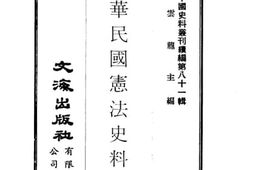 國史料叢刊續編第八十一輯
雲龍主編
華民國憲法史料
文海出版社
有限
公司